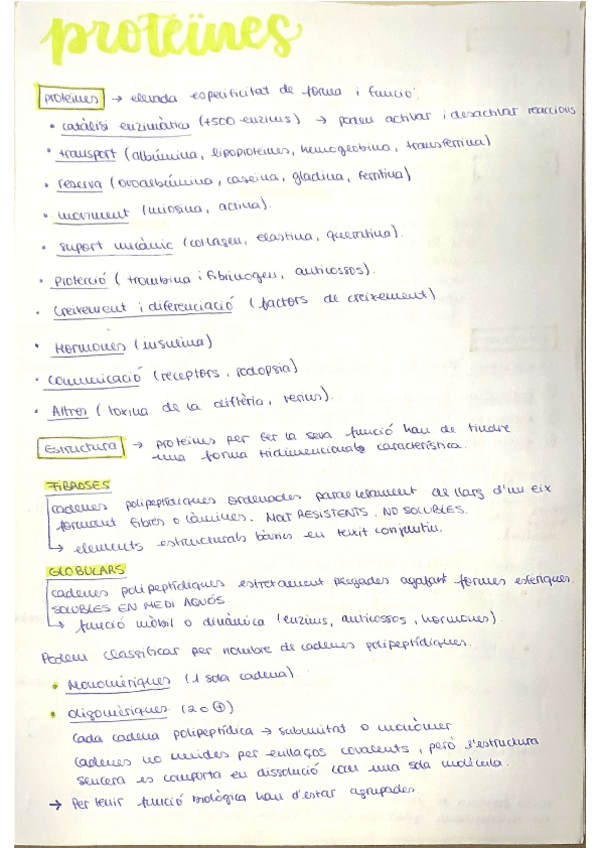 proteïnes
proteïnes → elevada especificitat de forma i funció:
• catàlisi enzimàtica (+500 enzims) → poden activar i desactivar reaccions
• transport (albúmina, lipoproteïnes, hemoglobina, transferrina)
• reserva (ovoalbúmina, caseïna, gliadina, ferritina)
• moviment (miosina, actina).
• suport mecànic (col·lagen, elastina, queratina).
• Protecció (trombina i fibrinogen, anticossos).
• Creixement i diferenciació (factors de creixement)
• Hormones (insulina)
• Comunicació (receptors, rodopsia)
• Altres (toxina de la diftèria, verins).
Estructura → proteïnes per fer la seva funció han de tindre
una forma tridimensional característica.
FIBROSES
cadenes polipeptídiques ordenades paral·lelament al llarg d'un eix
formant fibres o làmines. MOLT RESISTENTS. NO SOLUBLES.
↳ elements estructurals bàsics en teixit conjuntiu.
GLOBULARS
cadenes polipeptídiques estretament plegades agafant formes esfèriques.
SOLUBLES EN MEDI AQUÓS.
↳ funció mòbil o dinàmica (enzims, anticossos, hormones).
Podem classificar per nombre de cadenes polipeptídiques.
• Monomèriques (1 sola cadena)
• oligomèriques (2 o ⊕)
Cada cadena polipeptídica → subunitat o monòmer
Cadenes no unides per enllaços covalents, però l'estructura
sencera es comporta en dissolució com una sola molècula.
→ Per tenir funció biològica han d'estar agrupades.